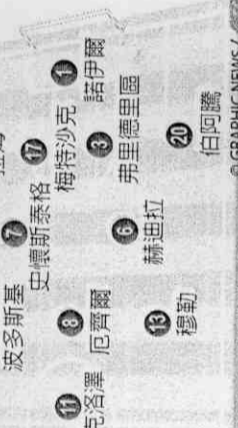 1
諾伊爾
17
梅特沙克
3
弗里德里區
20
伯阿騰
7
史懷斯泰格
6
赫迪拉
波多斯基
8
厄齊爾
13
穆勒
11
克洛澤
© GRAPHIC NEWS /